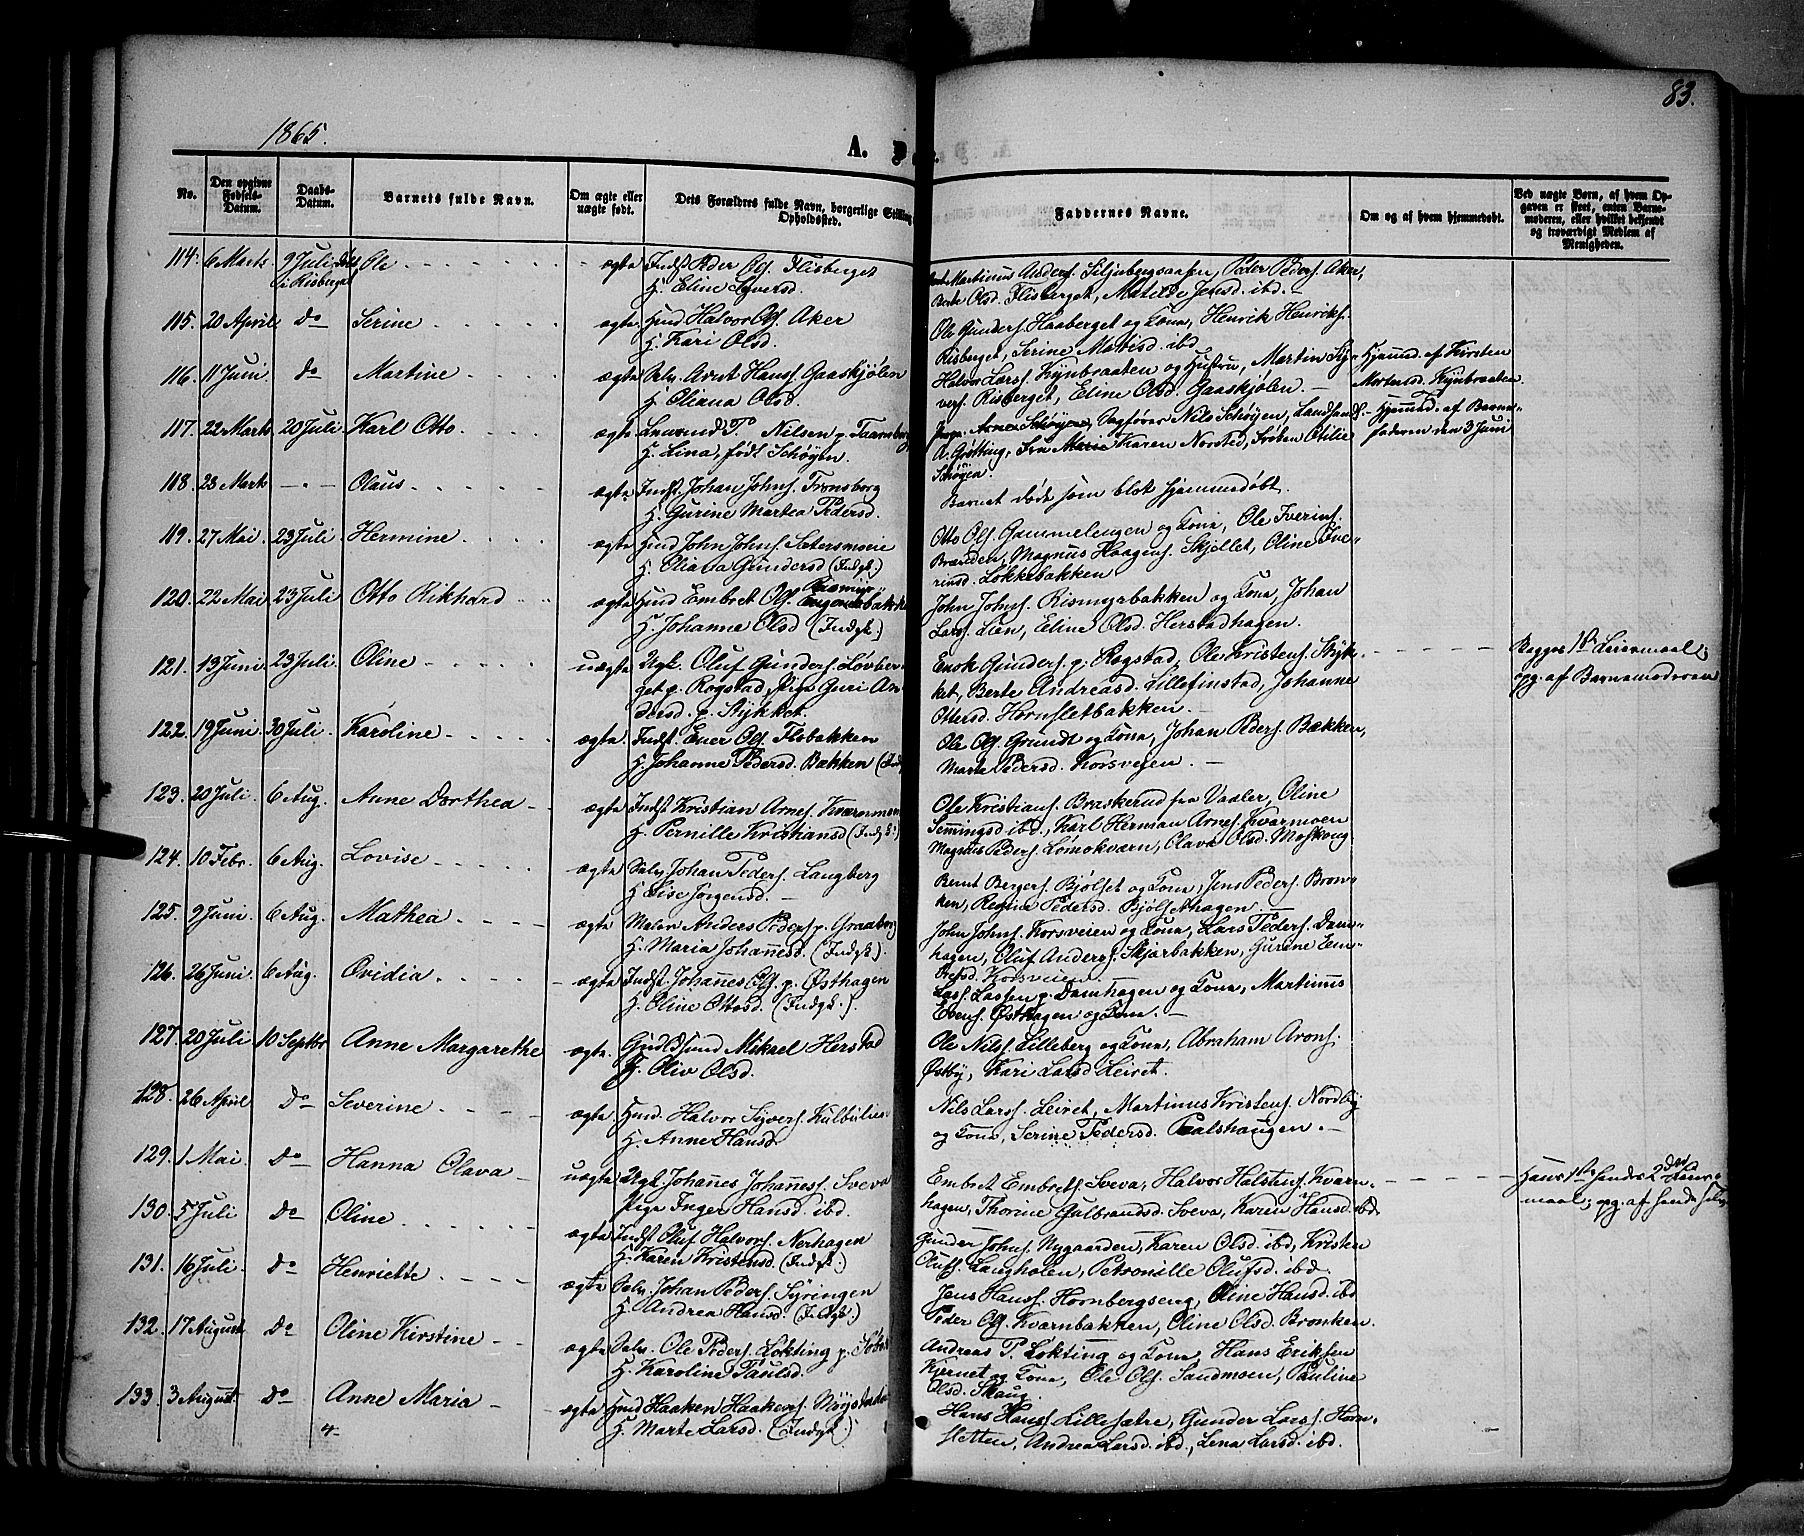 83.
1865.
A.
No.
Den opgivne Fødsels-Datum.
Daabs-Datum.
Barnets fulde Navn.
Om ægte eller uægte født.
Dets Forældres fulde Navn, borgerlige Stilling
Opholdssted.
Faddernes Navne.
Om og af hvem hjemmedøbt.
Ved uægte Børn, af hvem Op-
gaven er skeet, enten Barne-
moderen, eller hvilket bekjendt
og troværdigt Medlem af
Menigheden.
114. 6 Marts 9 Juli Risberget Ole ægte Indst Peder Ols. Flisberget
H. Eline Syversd.
Martinus Anders. Siljubergsaasen, Peder Peders. Aker,
Berte Olsd. Flisberget, Matilde Jensd. ibd. —
115. 20 April Do Serine ægte Husd Halvor Ols. Aker
H. Kari Olsd.
Ole Gunders. Haaberget og Kona, Henrik Henriks.
Risberget, Serine Mathisd. ibd.
116. 11 Juni Do Martine ægte Selv. Arnt Hanss. Gaaskjølen
H. Oliana Olsd.
Halvor Larss. Kynbraaten og Hustru, Martin Sy-
vers. Risberget, Eline Olsd. Gaaskjølen. —
Hjemmed. af Kirsten
Mortensd. Kynbraaten
117. 22 Marts 20 Juli Karl Otto ægte T. Nilsen p. Taarnborg
H. Lina, født Schøyen.
Arne Schøyen, Sagfører Nils Schøyen, Landhand.
A. Grøtting, Fru Marie Karen Norsted, Frøken Otilie
Schøyen.
Hjemmd. af Barne-
faderen den 3 Juni
118. 23 Mark — Olaus ægte Indst. Johan Johns. Tronsborg
H. Gurine Martea Pedersd.
Barnet døde som blot hjemmedøbt.
119. 27 Mai. 23 Juli Hermine ægte Husd John Johns. Sætersmoeie
H. Oliana Gundersd (Indgk.)
Otto Ols. Gammelengen og Kona, Ole Iverins.
Brænden, Magnus Haagens. Skjellet, Oline Ive-
rinsd. Løkkebakken
120. 22 Mai 23 Juli Otto Rikhard ægte Husd Embret Ols.
H. Johanne Olsd (Indgk.)
John Johns. Rismyrbakken og Kona, Johan
Larss. Lien, Eline Olsd. Herstadhagen.
121. 13 Juni 23 Juli Oline uægte Ugk. Oluf Gunders. Løvber-
get p. Rogstad, Pige Guri An-
dersd. p. Stykket.
Enok Gunders. p. Rogstad, Ole Kristens. Styk-
ket, Berte Andreasd. Lillefinstad, Johanne
Ottersd. Hornsletbakken. —
Begges 1ste Leiermaal;
opg. af Barnemoderen
122. 19 Juni 30 Juli Karoline ægte Indst. Ener Ols. Flisbakken
H. Johanne Pedersd. Bækken
Ole Ols. Grundt og Kona, Johan Peders. Bækken,
Marte Pedersd. Korsveien. —
123. 20 Juli 6 Aug. Anne Dorthea ægte Indst Kristian Arnes. Kværnmoen
H. Pernille Kristiansd (Indgk.)
Ole Kristians. Braskerud fra Vaaler, Oline
Semmingsd ibd., Karl Herman Arnes. Kvarnmoen
Magnus Peders. Lømokværn, Olava Olsd. Moskoug.
124. 10 Febr. 6 Aug. Lovise ægte Selv. Johan Peders. Langberg
H. Elise Jørgensd. —
Bernt Bergers. Bjølset og Kona, Jens Peders. Bron-
ken, Regine Pedersd. Bjølsethagen —
125. 9 Juni 6 Aug. Mathea ægte Maler Anders Peders. p. Graaberg
H. Maria Johannesd. (Indgk.)
John Johns. Korsveien og Kona, Lars Peders. Dam-
hagen, Oluf Anders. Skjærbakken, Gurine Em-
bretsd. Korsveien.
126. 26 Juni 6 Aug. Ovidia ægte Indst. Johannes Ols. p. Østhagen
H. Oline Ottosd. (Indgk.).
Lars Larsen p. Damhagen og Kona, Martinus
Evens. Østhagen og Kona. —
127. 20 Juli 10 Septbr Anne Margarethe ægte Mikael Herstad
H. Oliv Olsd.
Ole Nilss. Lilleberg og Kona, Abraham Arons.
Østby, Kari Larsd Leiret.
128. 26 April Do Severine ægte Husd. Halvor Syvers. Kulblie
H. Anne Hansd.
Nils Larss. Leiret, Martinus Kristens. Nordby
og Kona, Serine Pedersd. Paalshaugen. —
129. 1 Mai. Do Hanna Olava uægte Ugk. Johannes Johanness. Sveva
Pige Inger Hansd. ibd.
Embret Embrets. Sveva, Halvor Halstens. Kvarn-
hagen, Thorine Gulbrandsd. Sveva, Karen Hansd. ibd.
Hans 1ste hendes 2det Leier-
maal; opg. af hende selv.
130. 5 Juli Do Oline ægte Indst Oluf Halvors. Nerhagen
H. Karen Kristensd. (Indgk.)
Gunder Johns. Nygaarden, Karen Olsd. ibd, Kristen
Olufs. Langholen, Petronille Olufsd. ibd.
131. 16 Juli Do Henriette ægte Selv. Johan Peders. Syringen
H. Andrea Hansd. (Indgk.)
Jens Hanss. Hornbergseng, Oline Hansd. ibd
Peder Ols. Kvarnbakken, Oline Olsd. Bronken.
132. 17 August Do Oline Kirstine ægte Selv. Ole Peders. Løkting p.
H. Karoline Paulsd.
Andreas P. Løkting og Kona, Hans Eriksen
Kjernet og Kona, Ole Ols. Sandmoen, Pauline
Olsd. Skaug.
133. 3 August Do Anne Maria ægte Husd Haaken Haakens. Møystad
H. Marte Larsd. (Indgk.)
Hans Hanss. Lillesætre, Gunder Larss. Horn-
sletten, Andrea Larsd. ibd., Lena Larsd. ibd.